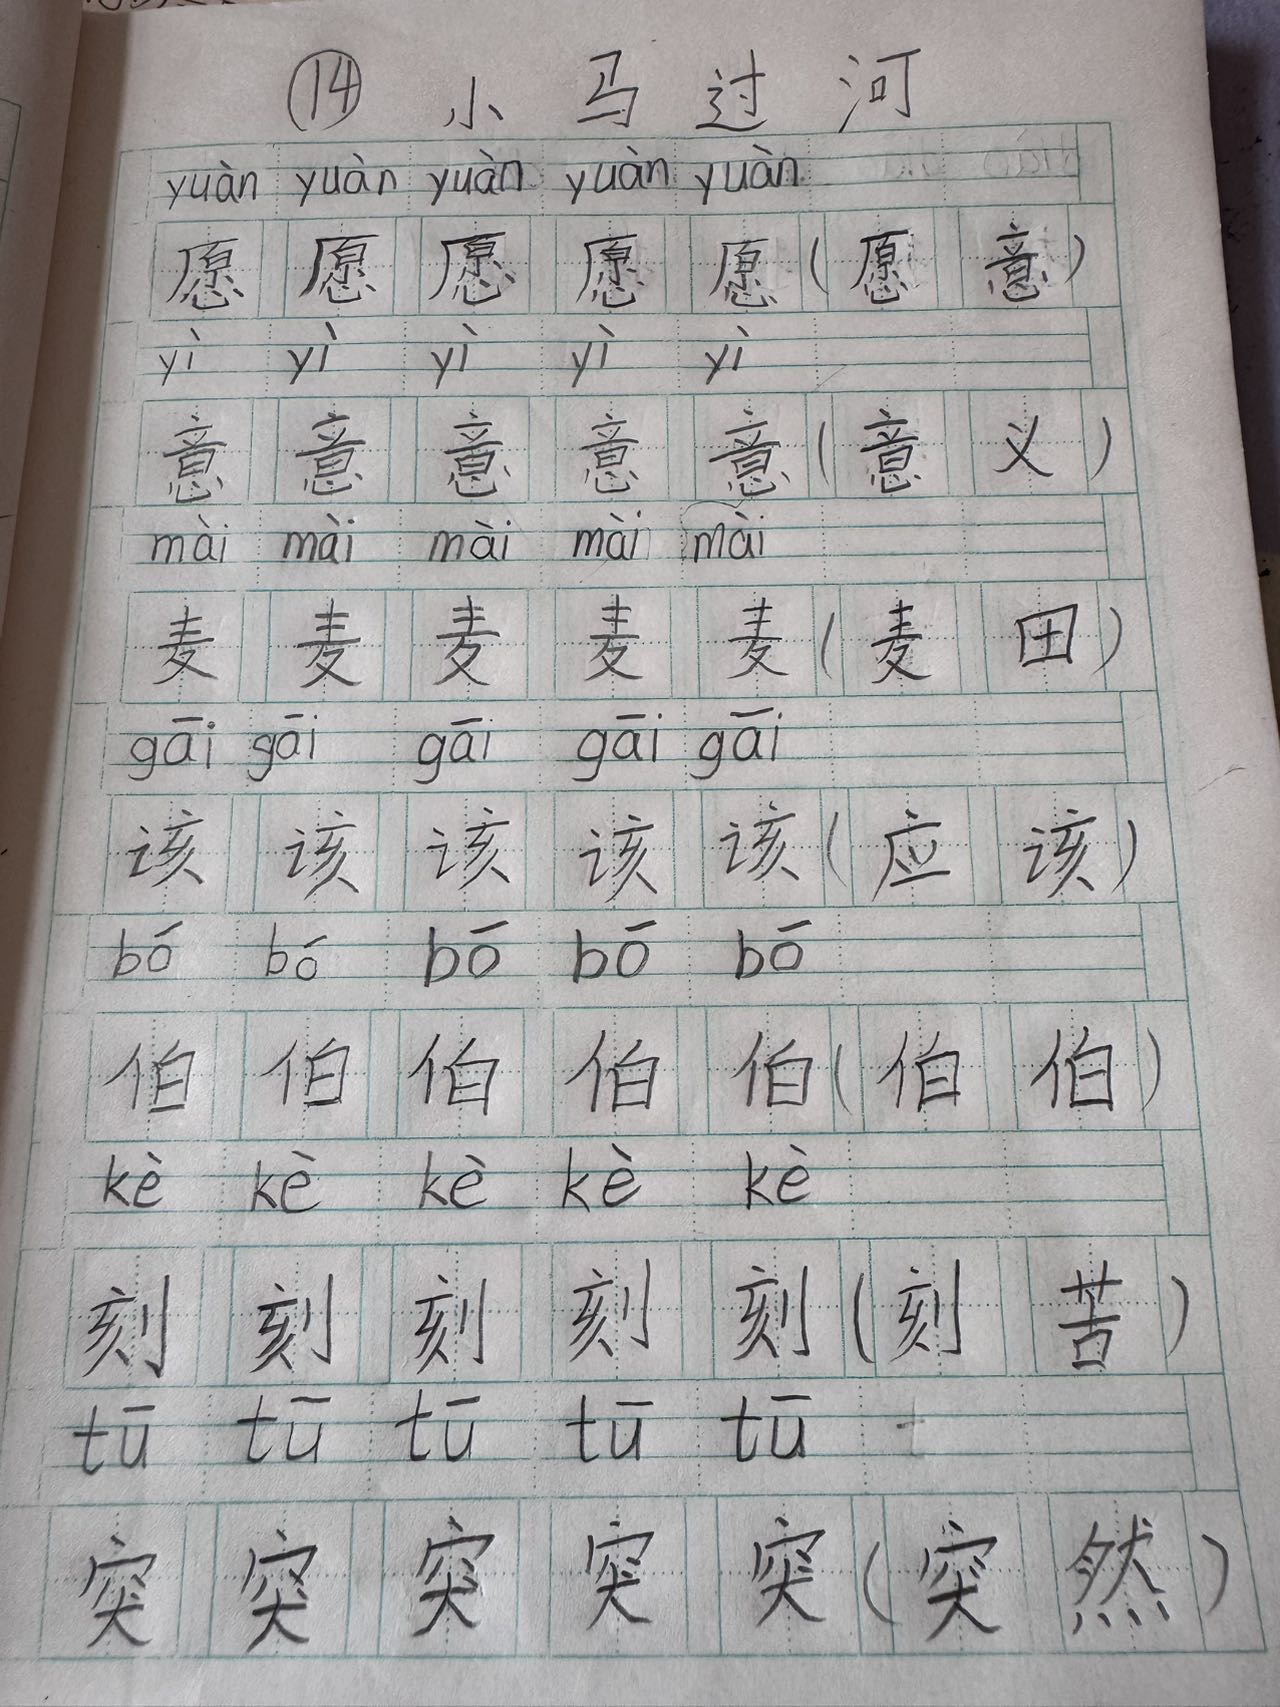 ⑭ 小马过河
yuàn yuàn yuàn yuàn yuàn
愿 愿 愿 愿 愿 (愿 意)
yì yì yì yì yì
意 意 意 意 意 (意 义)
mài mài mài mài mài
麦 麦 麦 麦 麦 (麦 田)
gāi gāi gāi gāi gāi
该 该 该 该 该 (应 该)
bó bó bō bō bō
伯 伯 伯 伯 伯 (伯 伯)
kè kè kè kè kè
刻 刻 刻 刻 刻 (刻 苦)
tū tū tū tū tū
突 突 突 突 突 (突 然)